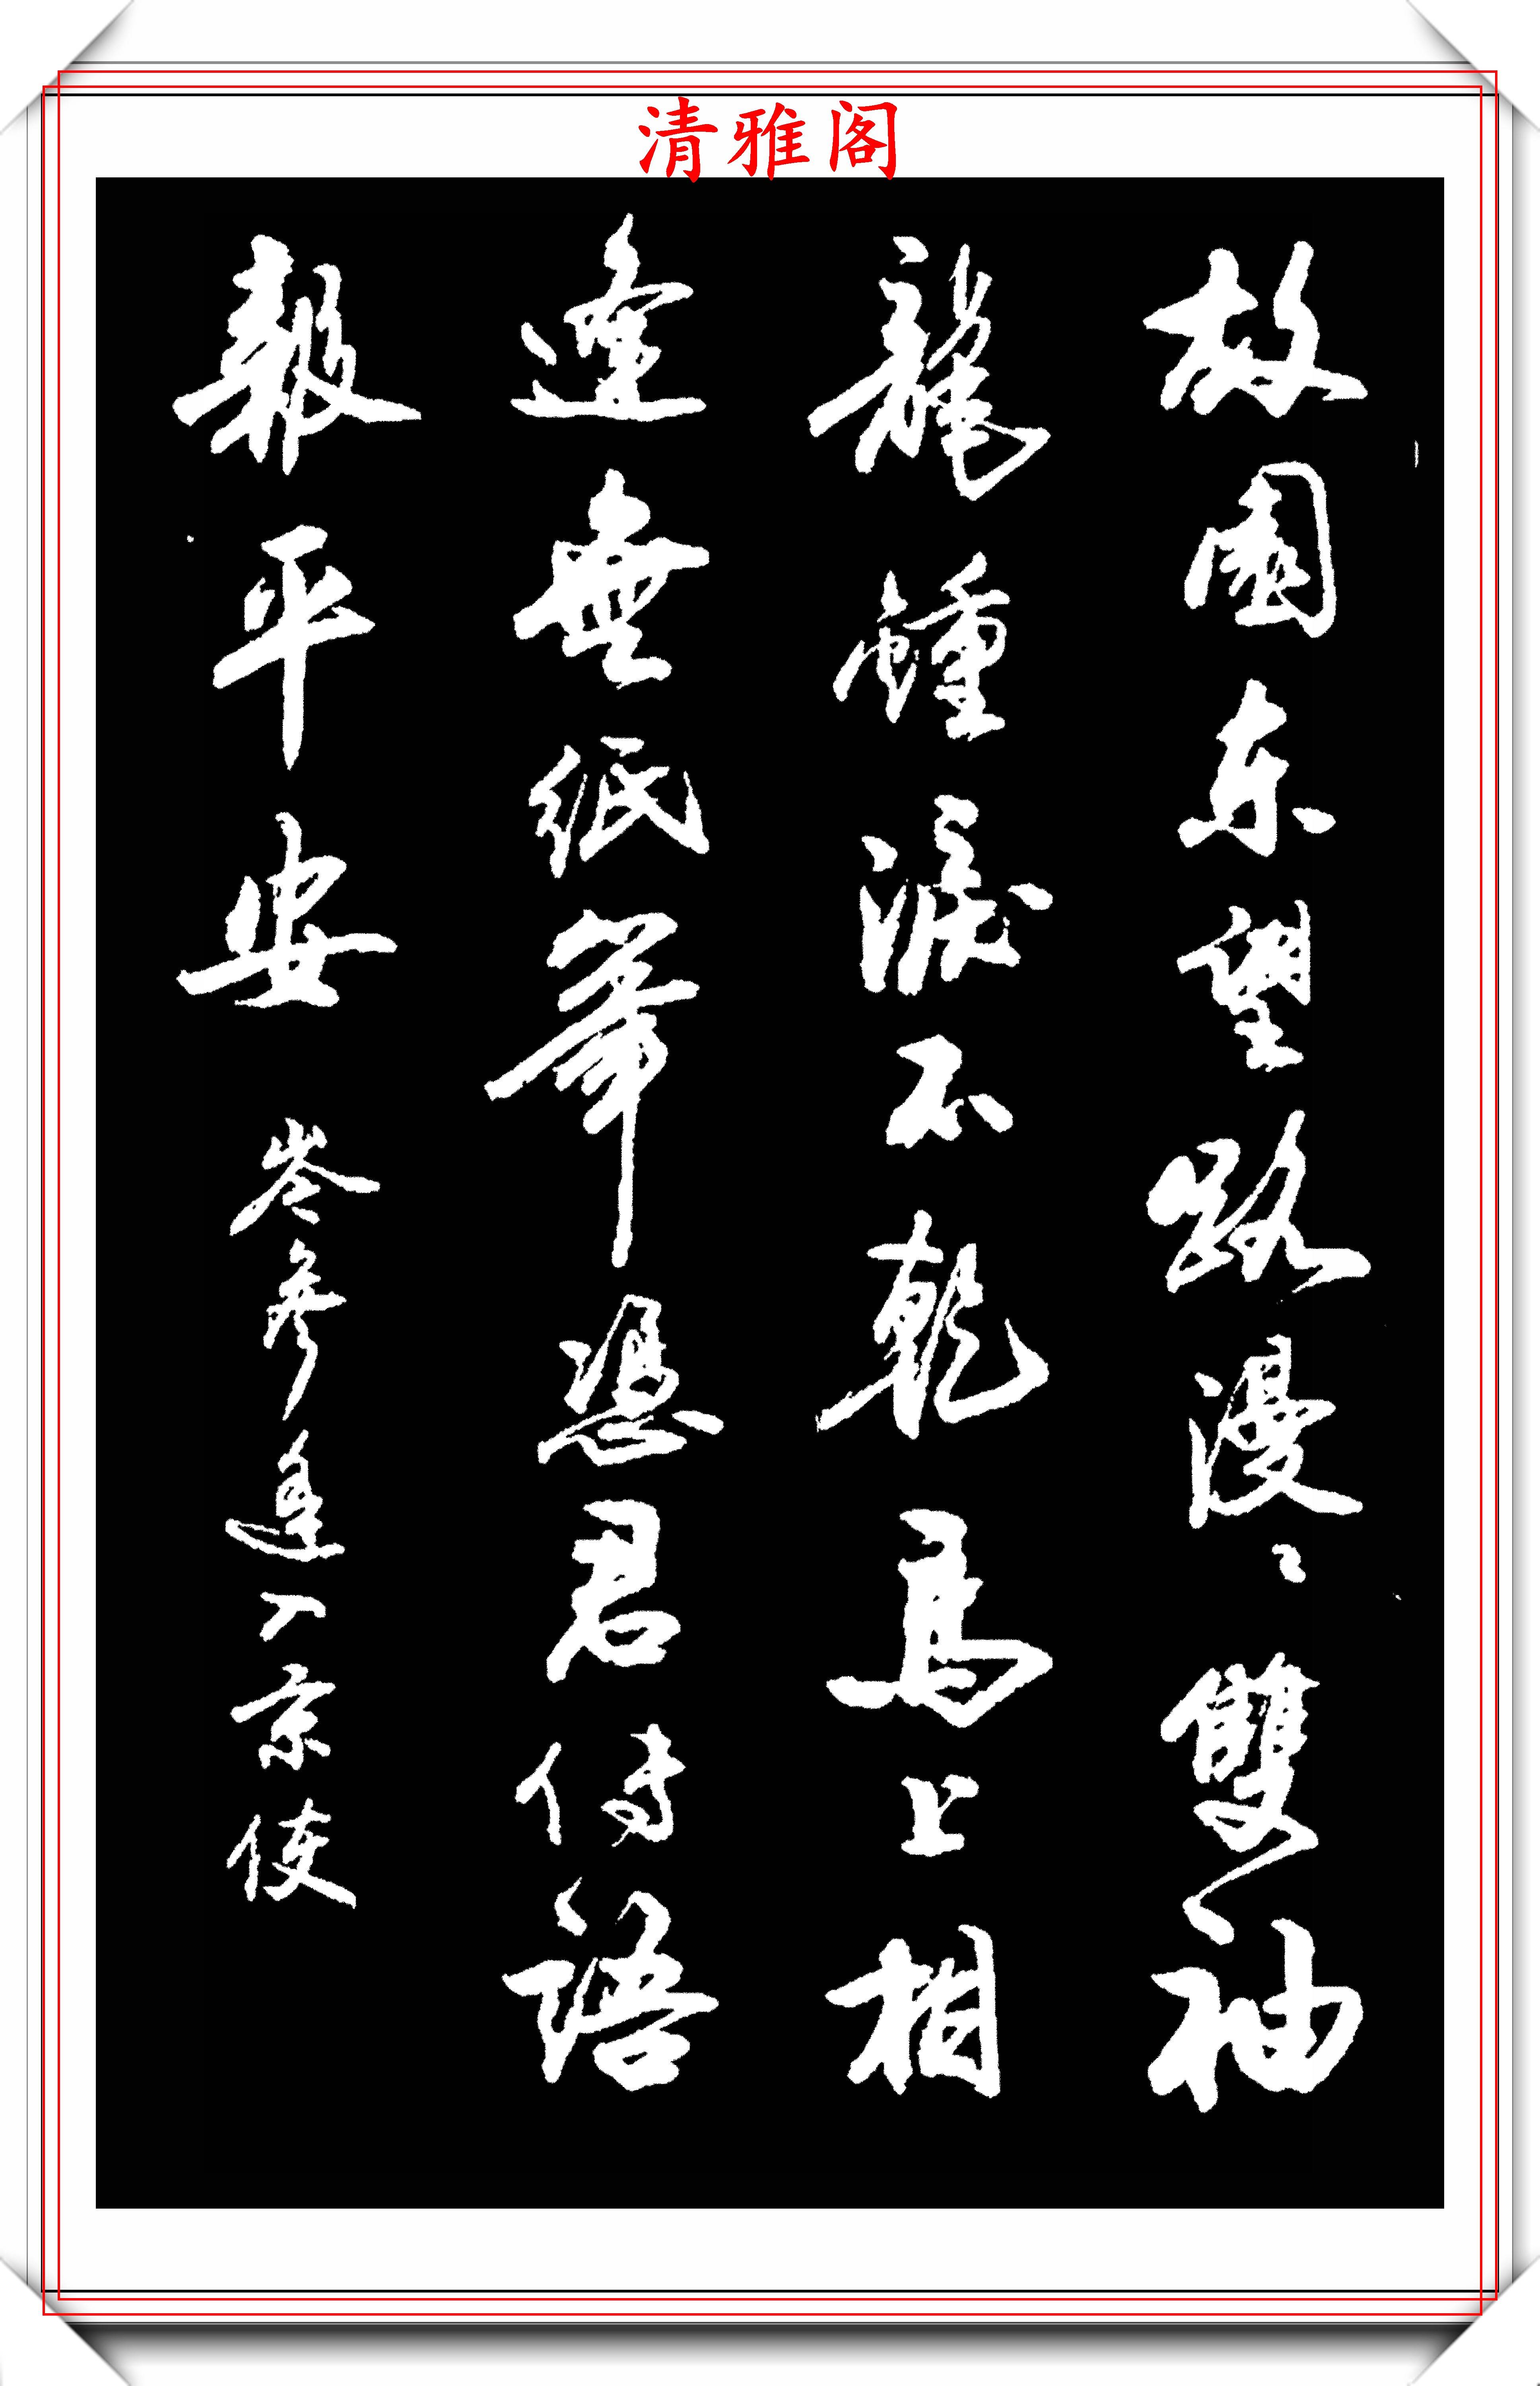 清雅阁
故園东望路漫〻雙袖
龍鍾淚不乾馬上相
逢無紙筆憑君傳語
報平安 岑參逢入京使